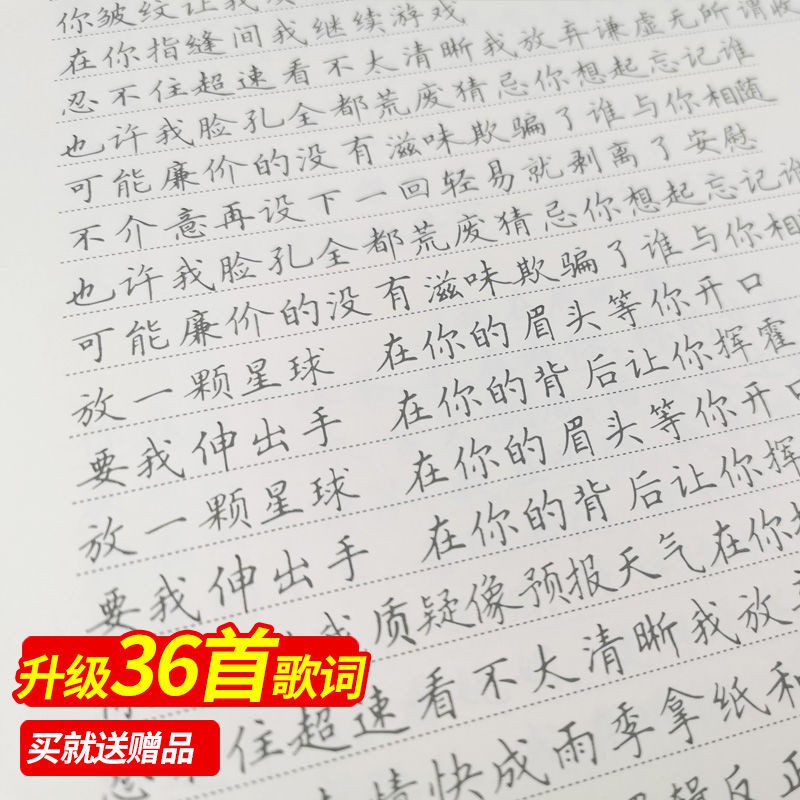 你皱纹让我
在你指缝间我继续游戏
忍不住超速看不太清晰我放弃谦虚无所谓收
也许我脸孔全都荒废猜忌你想起忘记谁
可能廉价的没有滋味欺骗了谁与你相随
不介意再设下一回轻易就剥离了安慰
也许我脸孔全都荒废猜忌你想起忘记谁
可能廉价的没有滋味欺骗了谁与你相
放一颗星球 在你的眉头等你开口
要我伸出手 在你的背后让你挥霍
放一颗星球 在你的眉头等你开口
要我伸出手 在你的背后让你挥
我质疑像预报天气在你
住超速看不太清晰我放
情快成雨季拿纸和
反正
升级36首歌词
买就送赠品